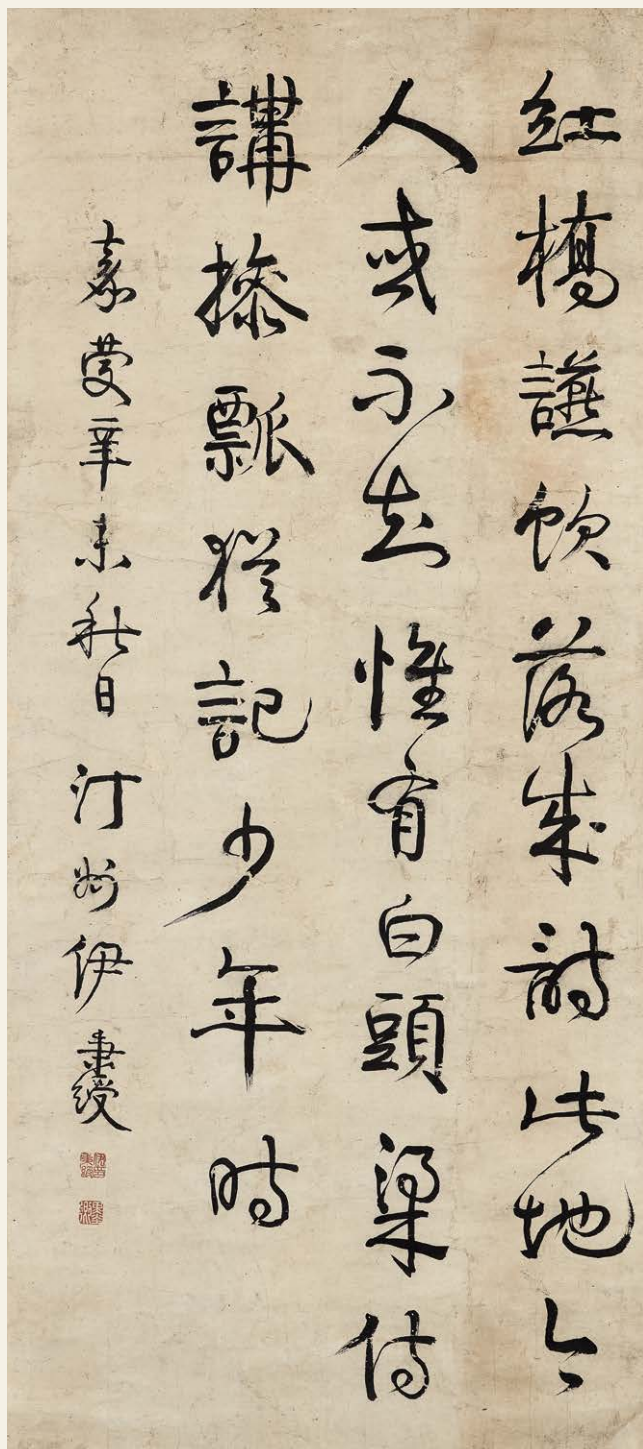 紅橋讌飲落成詩此地今
人或不知惟有白頭梁侍
講操瓢猶記少年時
嘉慶辛未秋日汀州伊秉綬